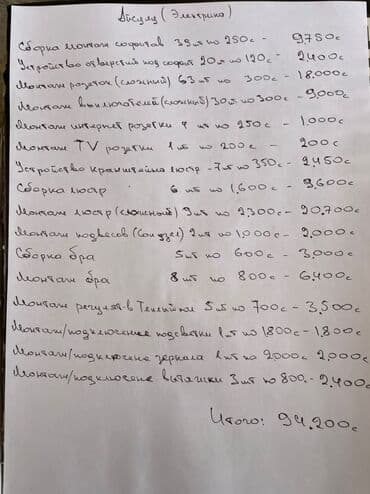 Айсулу (Электрика)
Сборка монтаж софитов 39шт по 250с - 9,750с
Устройство отверстий под софит 20шт по 120с - 2,400с
Монтаж розеток (сложный) 63шт по 300с - 18,000с
Монтаж выключателей (сложный) 30шт по 300с - 9,000с
Монтаж интернет розетки 4 шт по 250с - 1,000с
Монтаж TV розетки 1шт по 200с - 200с
Устройство кранштейна люстр - 7шт по 350с - 2,450с
Сборка люстр 6 шт по 1,600с - 9,600с
Монтаж люстр (сложный) 9шт по 2,300с - 20,700с
Монтаж подвесов (Сан узел) 2шт по 1,000с - 2,000с
Сборка бра 5шт по 600с - 3,000с
Монтаж бра 8шт по 800с - 6,400с
Монтаж регулят-в 5шт по 700с - 3,500с
Монтаж/подключение подсветки 1шт по 1800с - 1,800с
Монтаж/подключение зеркала 1шт по 2000с 2,000с
Монтаж/подключение вытяжки 3шт по 800 - 2,400с
Итого: 94,200с